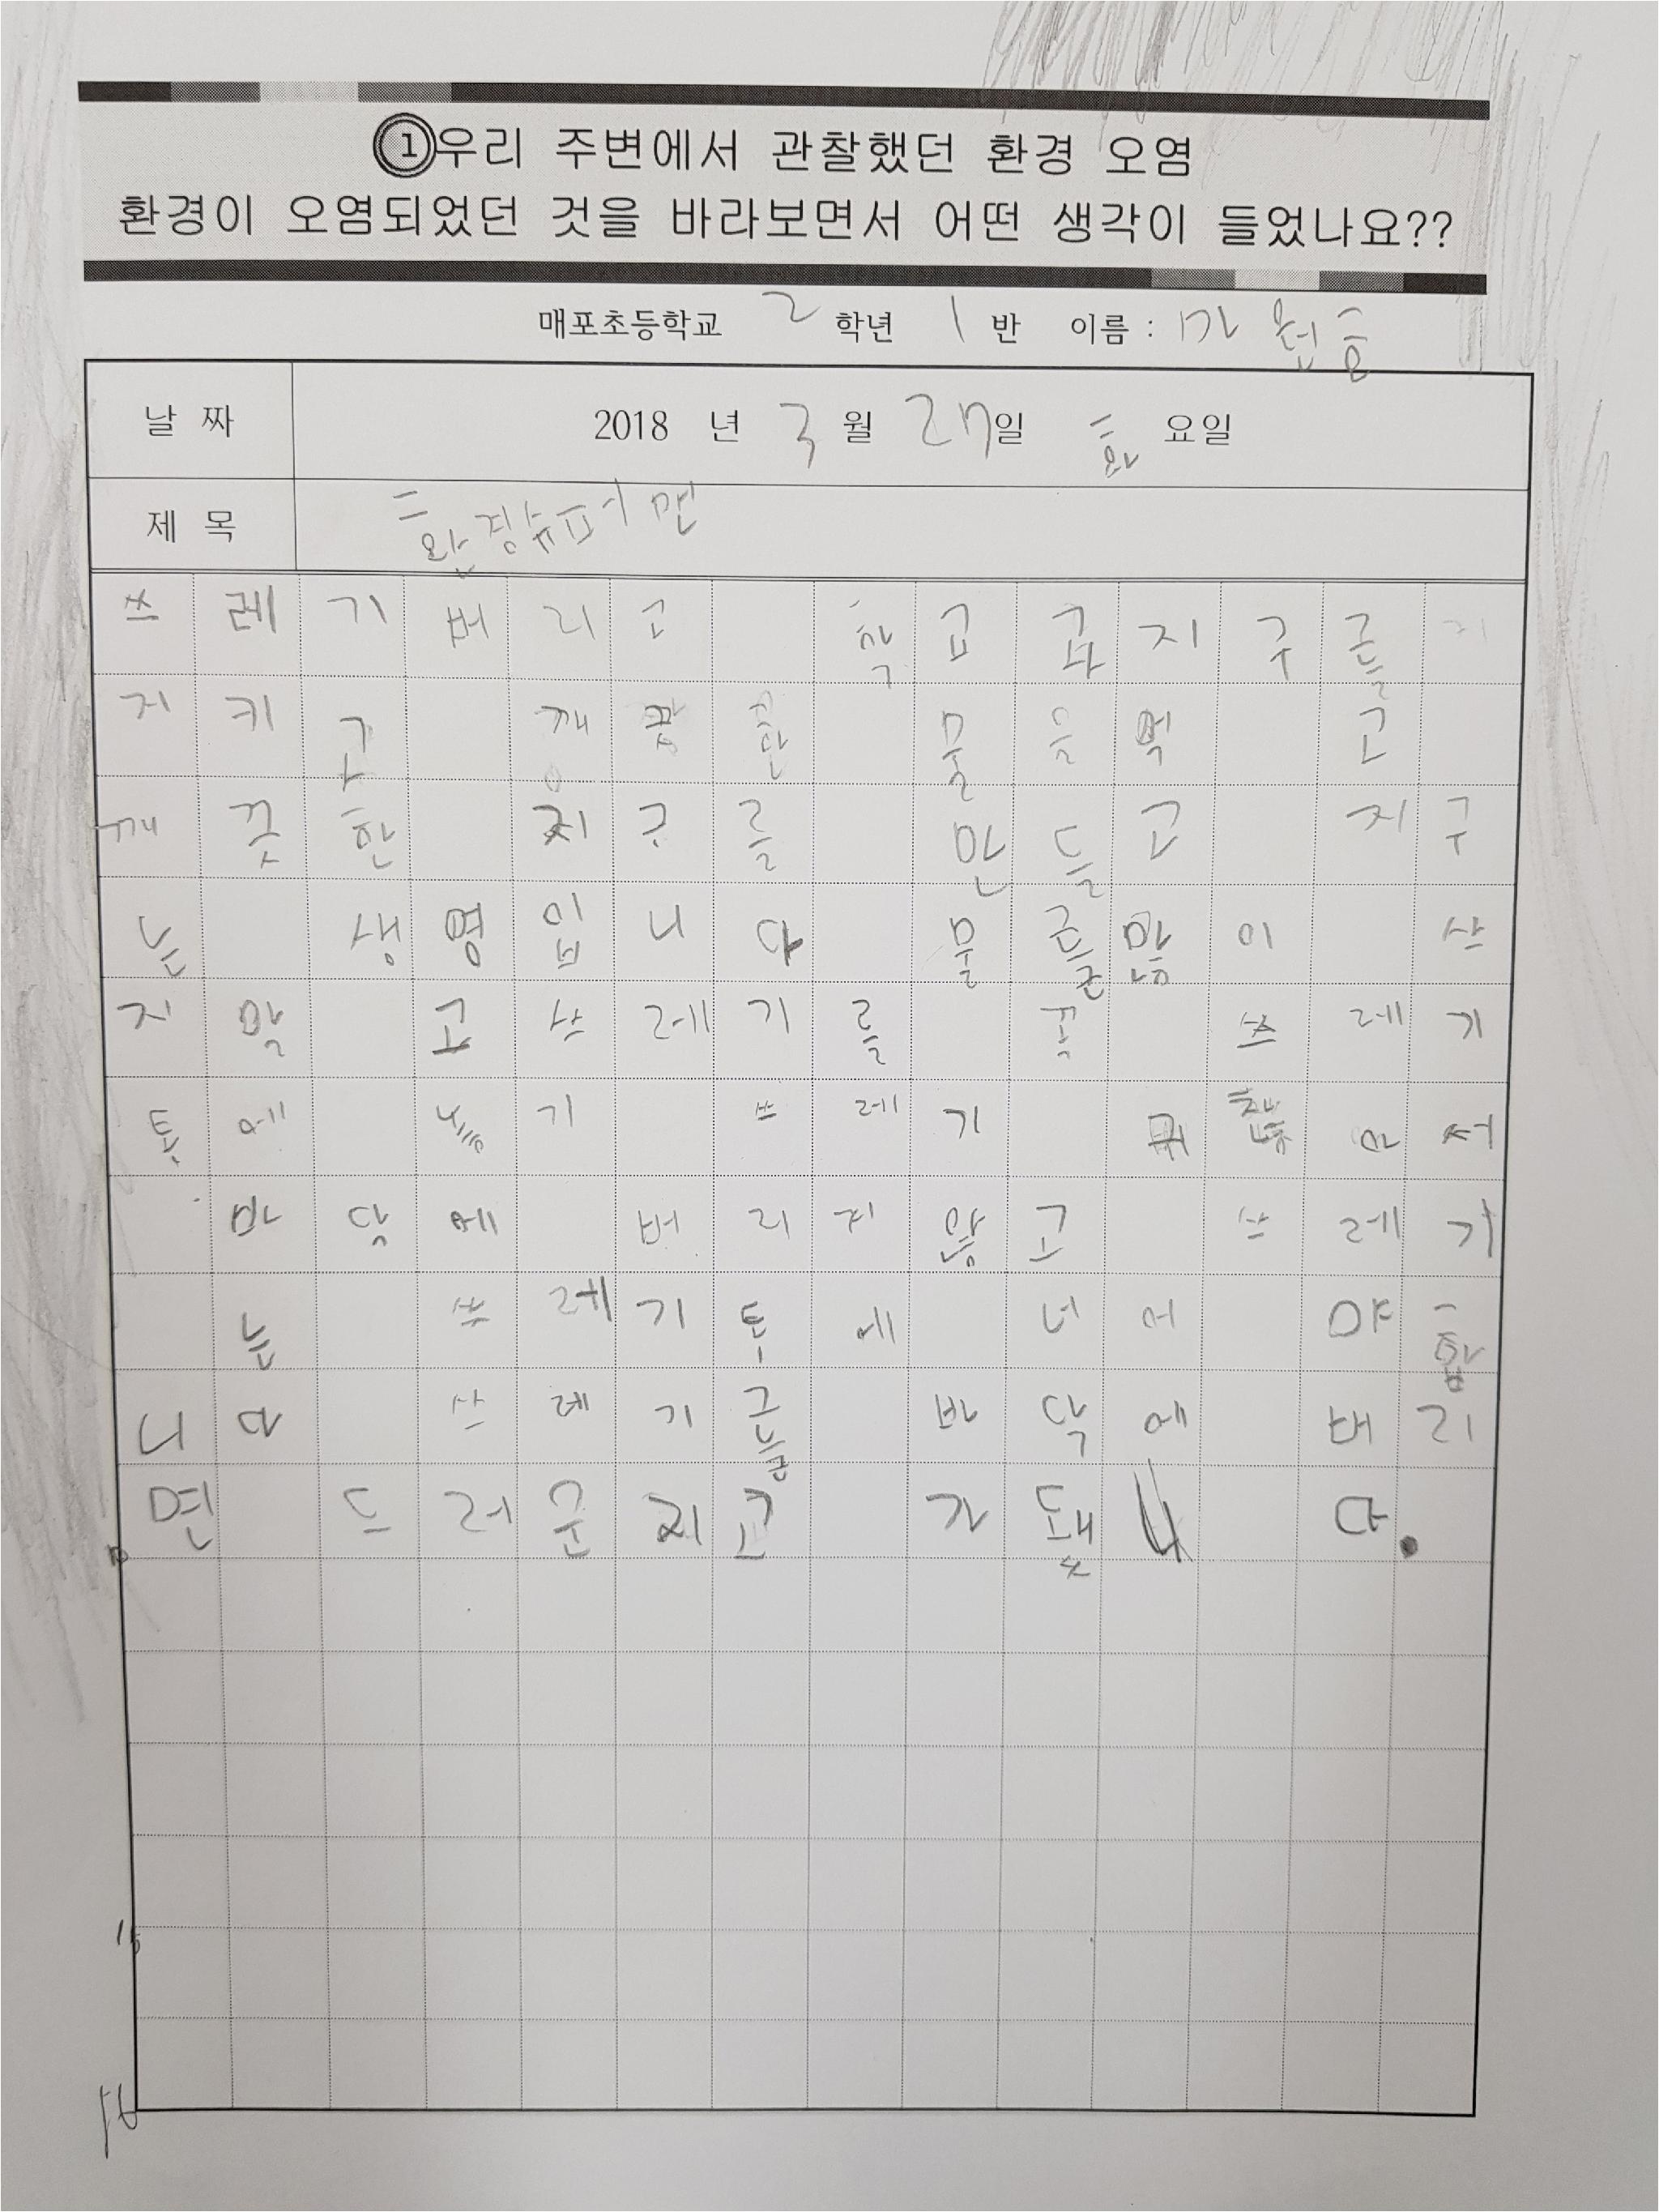 ①우리 주변에서 관찰했던 환경 오염
환경이 오염되었던 것을 바라보면서 어떤 생각이 들었나요??
매포초등학교 2 학년 1 반 이름 :
날 짜 2018 년 3 월 27일 화 요일
제 목 환경슈퍼맨
쓰레기버리고 학교 지구를
지키고 깨끗한 물을먹 고
깨끗한 지구를 만들고 지구
는 생명입니다 물 이 사
지말 고쓰레기를 꼭 쓰레기
통에 놓기 쓰레기 귀찮아서
바닥에 버리지않고 쓰레기
는 쓰레기통에 너어 야합
니다 쓰레기를 바닥에 버리
면 드러운지고 가 다.